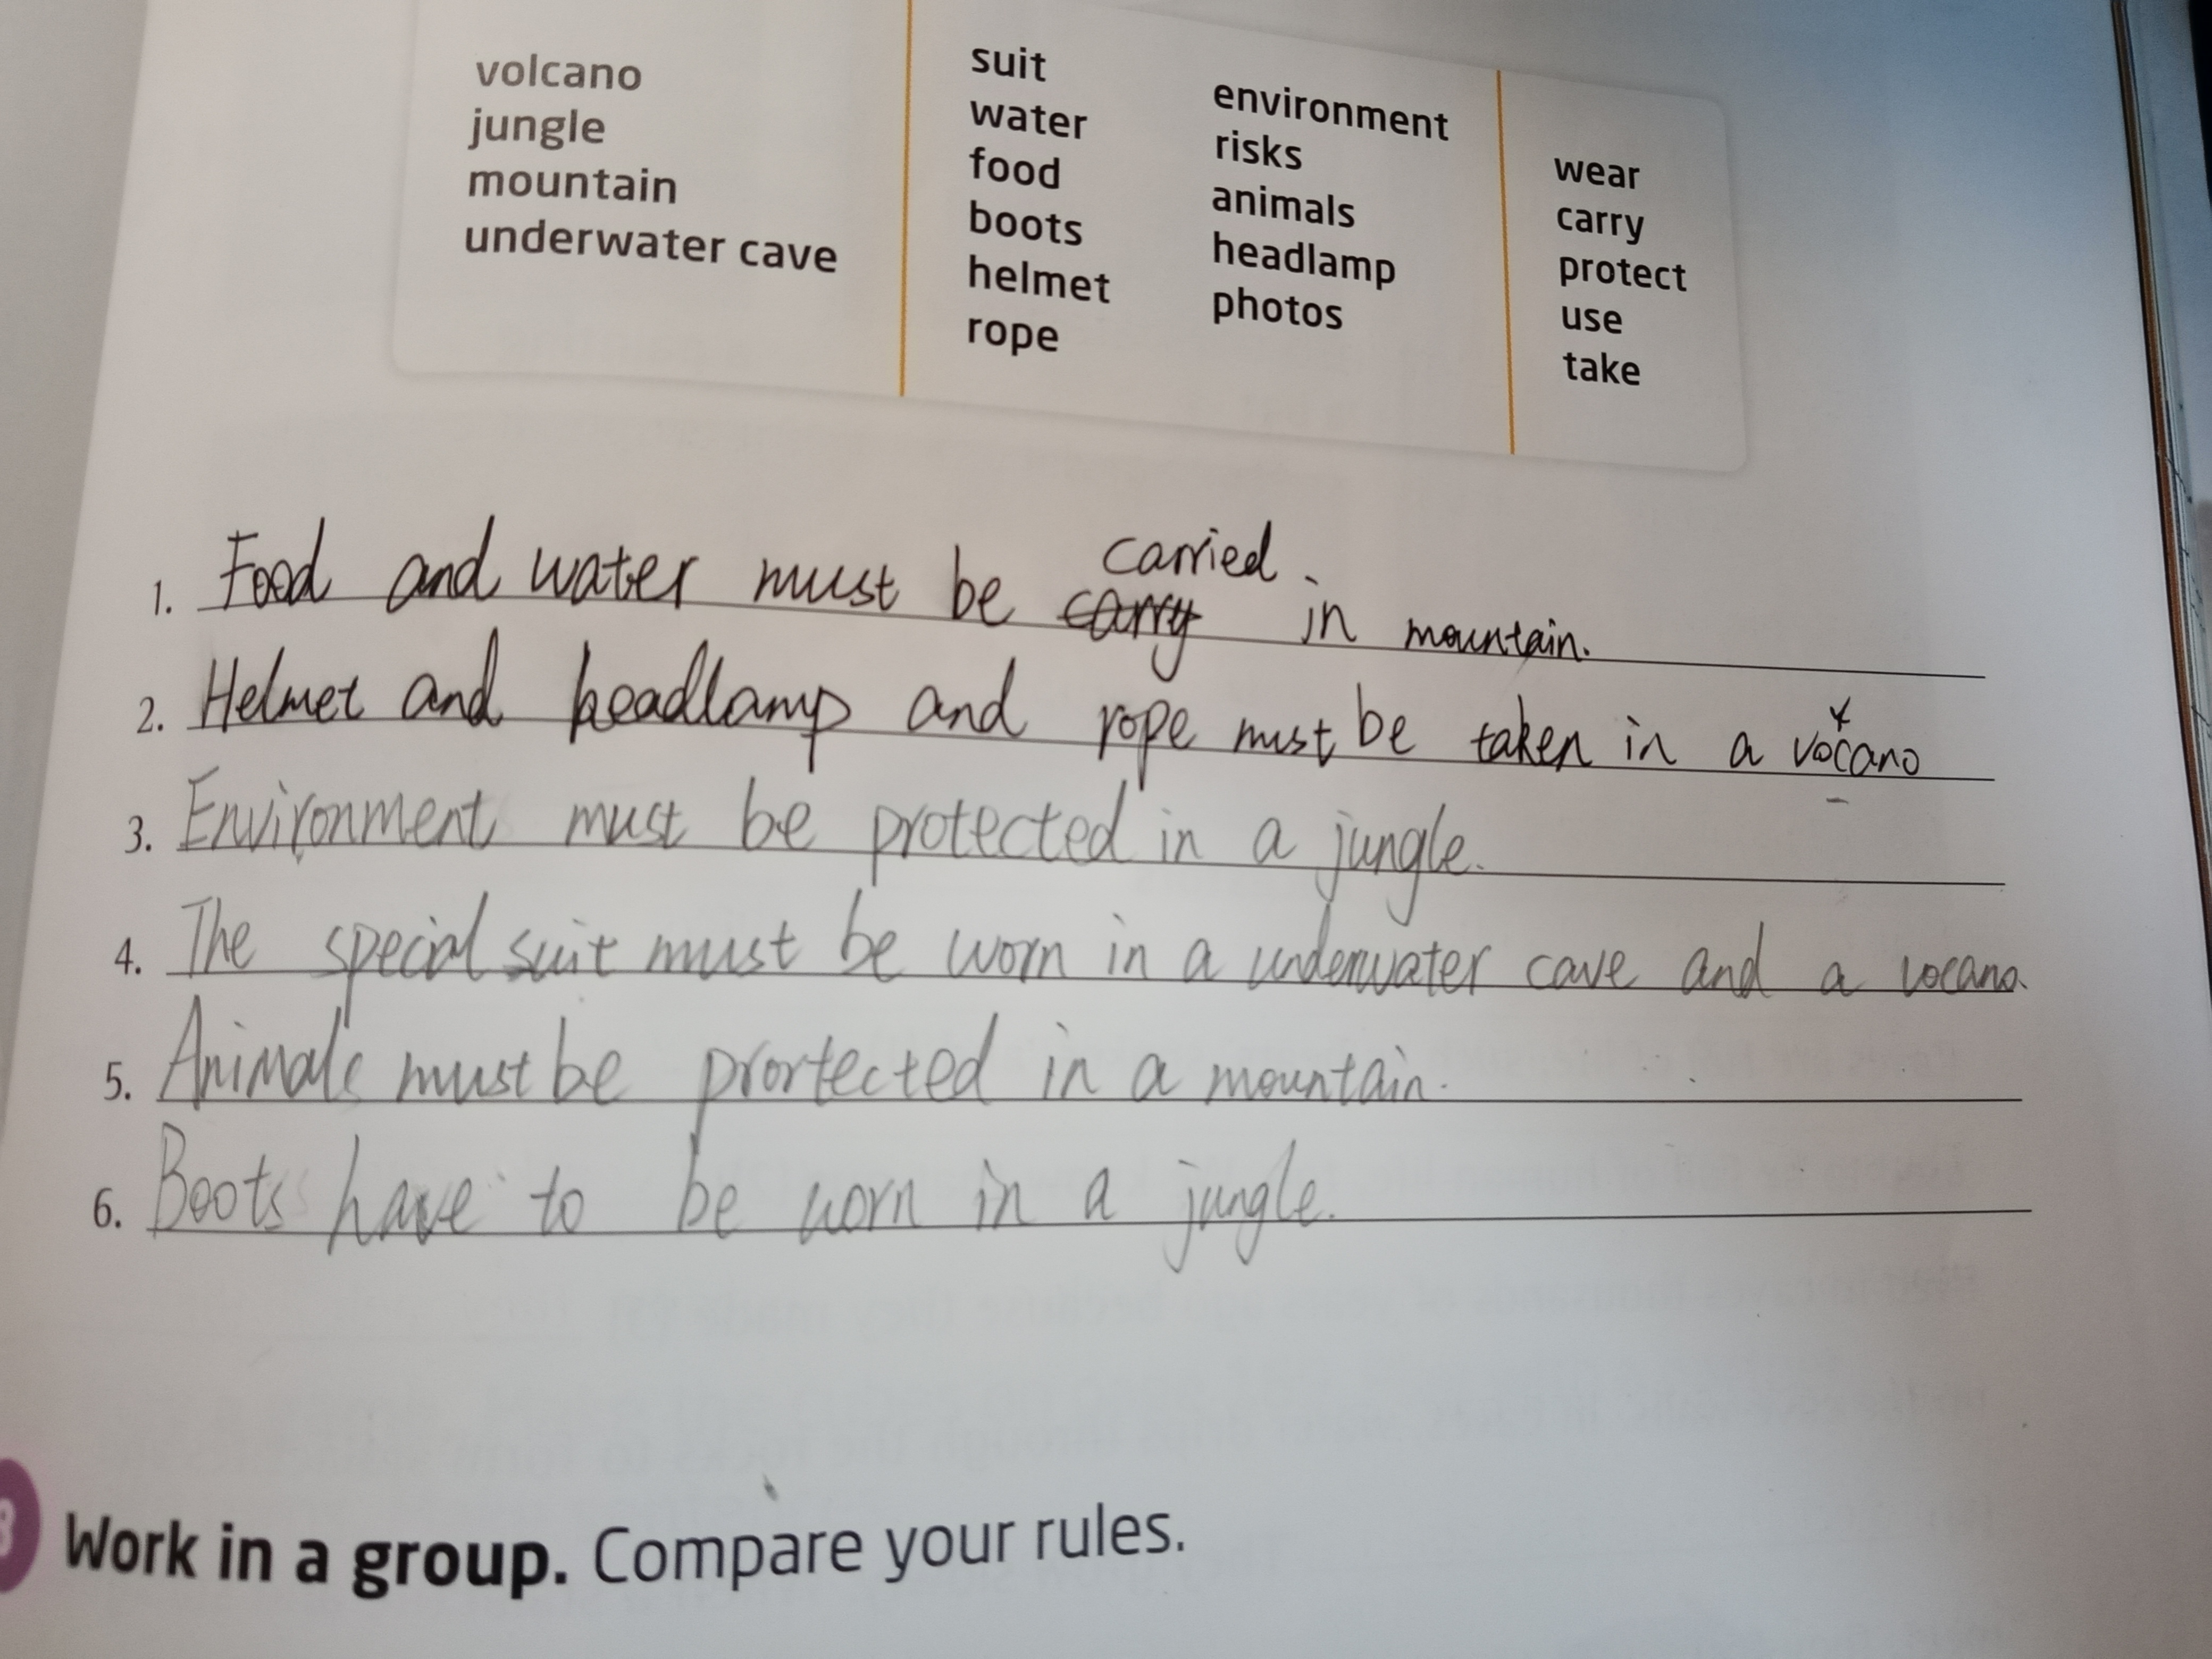 volcano
jungle
mountain
underwater cave
suit
water
food
boots
helmet
rope
environment
risks
animals
headlamp
photos
wear
carry
protect
use
take
1. Food and water must be carry carried in mountain.
2. Helmet and headlamp and rope must be taken in a vocano
3. Environment must be protected in a jungle.
4. The special suit must be worn in a underwater cave and a vocano.
5. Animals must be prortected in a mountain.
6. Boots have to be worn in a jungle.
Work in a group. Compare your rules.